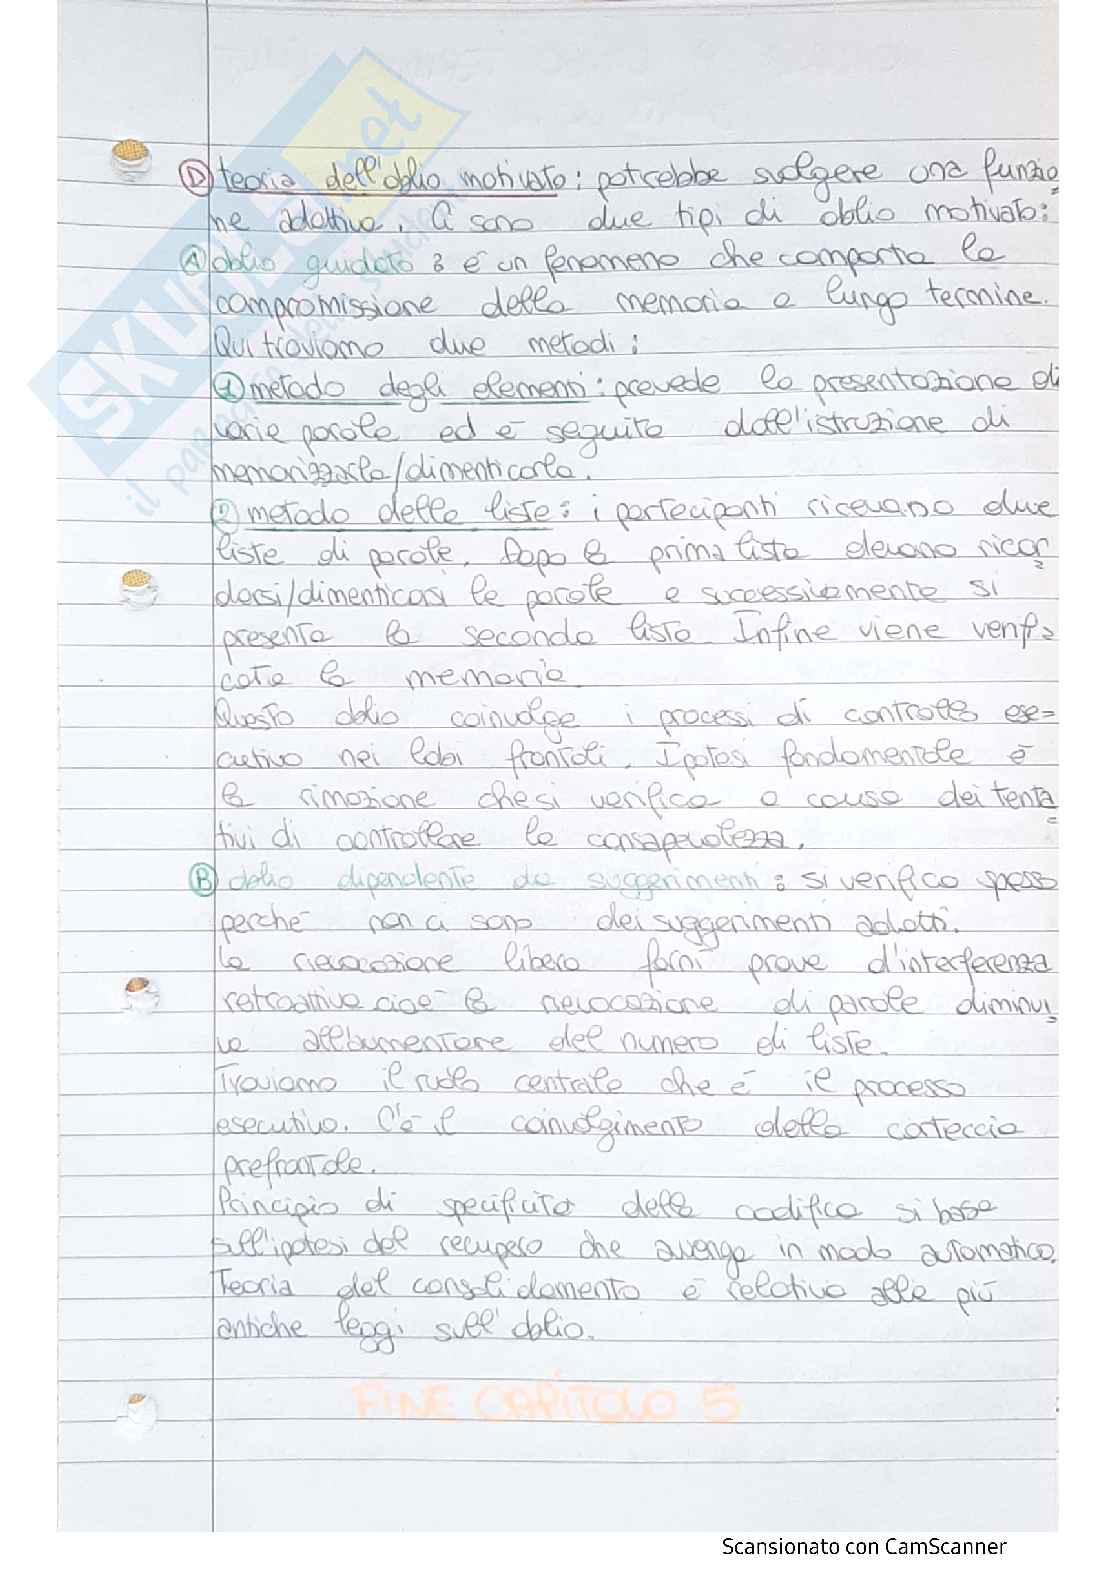 D teoria dell'oblio motivato: potrebbe svolgere una funzio
ne adattiva. Ci sono due tipi di oblio motivato:
A oblio guidato: è un fenomeno che comporta la
compromissione della memoria a lungo termine.
Qui troviamo due metodi:
1 metodo degli elementi: prevede la presentazione di
varie parole ed è seguita dall'istruzione di
memorizzarla/dimenticarla.
2 metodo delle liste: i partecipanti ricevano due
liste di parole. Dopo la prima lista devono ricor
darsi/dimenticarsi le parole e successivamente si
presenta la seconda lista. Infine viene verifi
cata la memoria.
Questo oblio coinvolge i processi di controllo ese=
cutivo nei lobi frontali. Ipotesi fondamentale è
la rimozione che si verifica a causa dei tenta
tivi di controllare la consapevolezza.
B oblio dipendente da suggerimenti: si verifica spesso
perché non ci sono dei suggerimenti adatti.
La rievocazione libera fornì prove d'interferenza
retroattiva cioè la rievocazione di parole diminui
va all'aumentare del numero di liste.
Troviamo il ruolo centrale che è il processo
esecutivo. C'è il coinvolgimento della corteccia
prefrontale.
Principio di specificità della codifica si basa
sull'ipotesi del recupero che avenga in modo automatico.
Teoria del consolidamento è relativa alle più
antiche leggi sull'oblio.
FINE CAPITOLO 5
SKUOLA.net
il paradiso dello studente
Scansionato con CamScanner